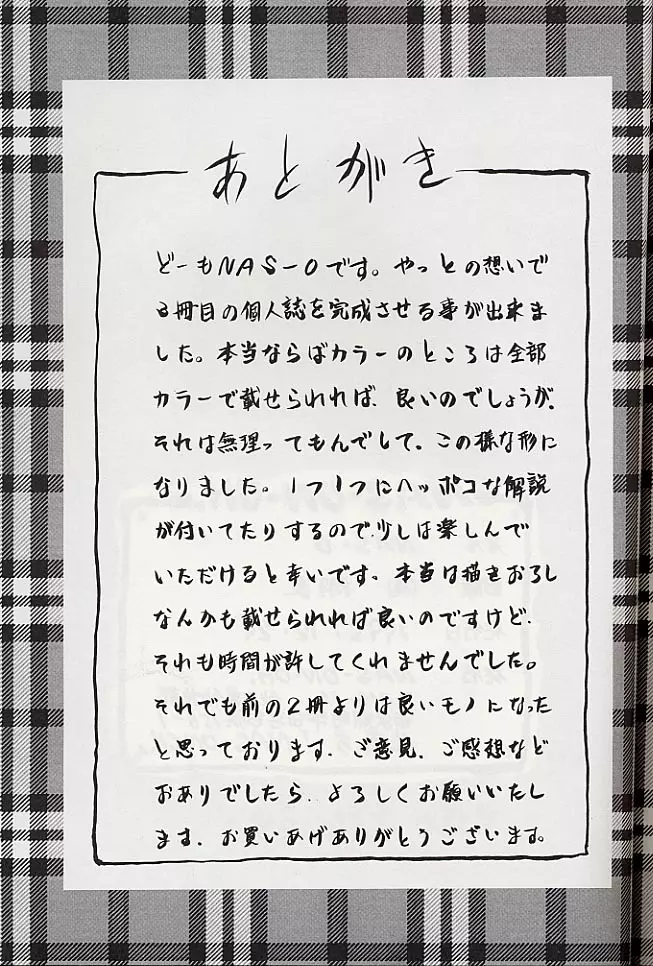 あとがき
どーもNAS-Oです。やっとの想いで
3冊目の個人誌を完成させる事が出来ま
した。本当ならばカラーのところは全部
カラーで載せられれば、良いのでしょうが、
それは無理ってもんでして、この様な形に
なりました。1つ1つにヘッポコな解説
が付いてたりするので少しは楽しんで
いただけると幸いです。本当は描きおろし
なんかも載せられれば良いのですけど、
それも時間が許してくれませんでした。
それでも前の2冊よりは良いモノになった
と思っております、ご意見、ご感想など
おありでしたら、よろしくお願いいたし
ます、お買いあげありがとうございます。